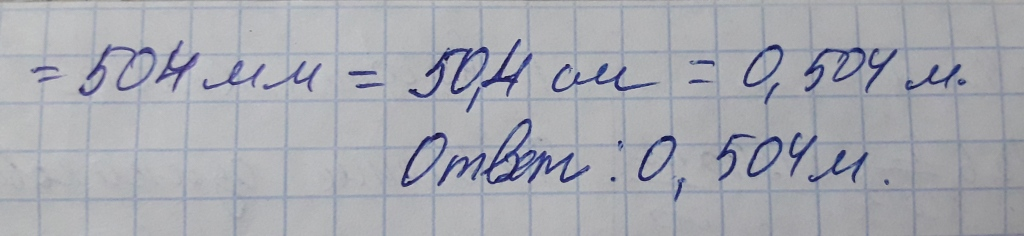 = 504 мм = 50,4 см = 0,504 м.
Ответ: 0,504 м.